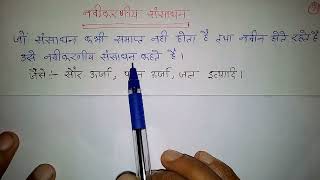 नवीकरणीय संसाधन
जो संसाधन कभी समाप्त नहीं होता है तथा नवीन होते रहते है
उसे नवीकरणीय संसाधन कहते है।
जैसे:- सौर ऊर्जा, ऊर्जा, जल इत्यादि।